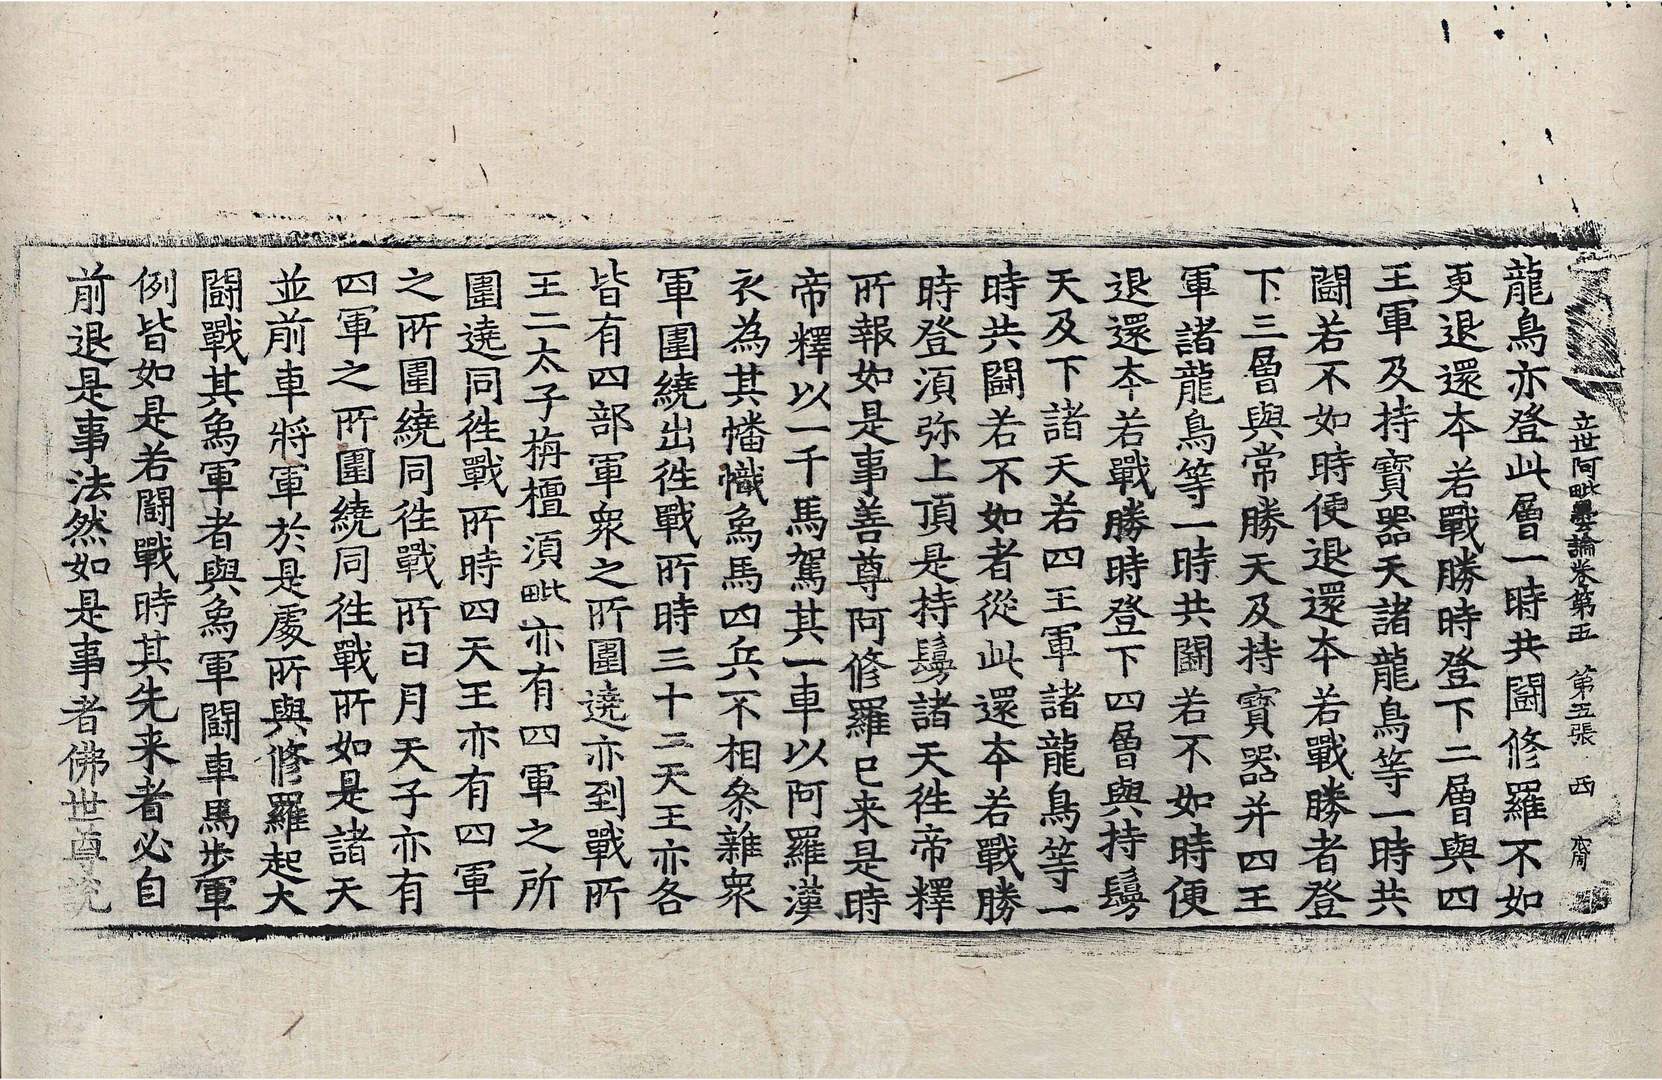 立世阿毗曇論卷第五 第五張 西
龍鳥亦登此層一時共鬪修羅不如
更退還本若戰勝時登下二層與四
王軍及持寶器天諸龍鳥等一時共
鬪若不如時便退還本若戰勝者登
下三層與常勝天及持寶器并四王
軍諸龍鳥等一時共鬪若不如時便
退還本若戰勝時登下四層與持鬘
天及下諸天若四王軍諸龍鳥等一
時共鬪若不如者從此還本若戰勝
時登湏弥上頂是持鬘諸天徃帝釋
所報如是事善尊阿修羅已来是時
帝釋以一千馬駕其一車以阿羅漢
衣為其幡幟象馬四兵不相叅雜衆
軍圍繞出徃戰所時三十三天王亦各
皆有四部軍衆之所圍遶亦到戰所
王二太子栴檀湏毗亦有四軍之所
圍遶同徃戰所時四天王亦有四軍
之所圍繞同徃戰所日月天子亦有
四軍之所圍繞同徃戰所如是諸天
並前車將軍於是處所與修羅起大
鬪戰其象軍者與象軍鬪車馬步軍
例皆如是若鬪戰時其先来者必自
前退是事法然如是事者佛世尊說